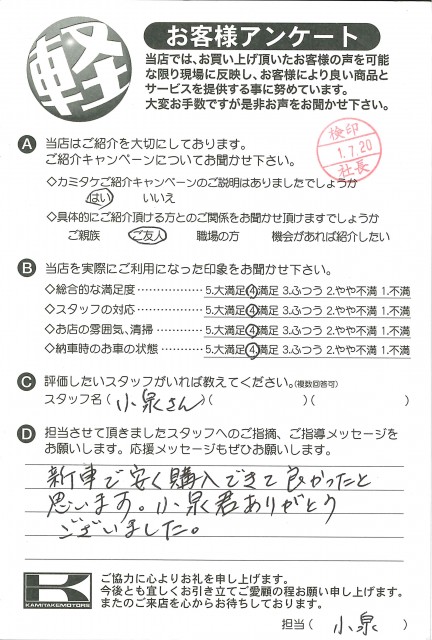 軽
お客様アンケート
当店では、お買い上げ頂いたお客様の声を可能
な限り現場に反映し、お客様により良い商品と
サービスを提供する事に努めています。
大変お手数ですが是非お声をお聞かせ下さい。
検印
1.7.20
社長
A 当店はご紹介を大切にしております。
ご紹介キャンペーンについてお聞かせ下さい。
◇カミタケご紹介キャンペーンのご説明はありましたでしょうか
はい いいえ
◇具体的にご紹介頂ける方とのご関係をお聞かせ頂けますでしょうか
ご親族 ご友人 職場の方 機会があれば紹介したい
B 当店を実際にご利用になった印象をお聞かせ下さい。
◇総合的な満足度 ……………… 5.大満足 4.満足 3.ふつう 2.やや不満 1.不満
◇スタッフの対応 ……………… 5.大満足 4.満足 3.ふつう 2.やや不満 1.不満
◇お店の雰囲気、清掃 ………… 5.大満足 4.満足 3.ふつう 2.やや不満 1.不満
◇納車時のお車の状態 ………… 5.大満足 4.満足 3.ふつう 2.やや不満 1.不満
C 評価したいスタッフがいれば教えてください。(複数回答可)
スタッフ名( 小泉さん )( )( )
D 担当させて頂きましたスタッフへのご指摘、ご指導メッセージを
お願いします。応援メッセージもぜひお願いします。
新車で安く購入できて良かったと
思います。小泉君ありがとう
ございました。
K
KAMITAKEMOTORS
ご協力に心よりお礼を申し上げます。
今後とも宜しくお引き立てご愛顧の程お願い申し上げます。
またのご来店を心からお待ちしております。
担当( 小泉 )